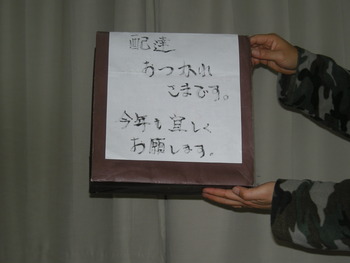 配達
おつかれ
さまです。
今年も宜しく
お願します。